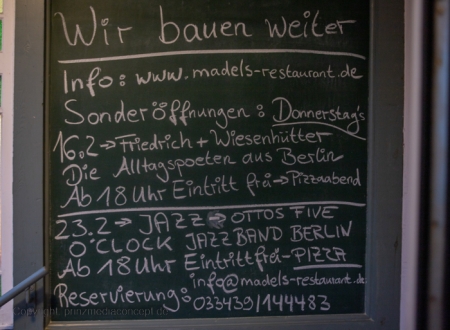 Wir bauen weiter
Info: www.madels-restaurant.de
Sonderöffnungen: Donnerstag's
16.2→Friedrich + Wiesenhütter
Die Alltagspoeten aus Berlin
Ab 18 Uhr Eintritt frei→Pizzaabend
23.2→JAZZ→OTTOS FIVE
O'CLOCK JAZZBAND BERLIN
Ab 18 Uhr Eintrittfrei-PIZZA
info@madels-restaurant.de
Reservierung:
033439/144483
copyright: prinzmediaconcept.de